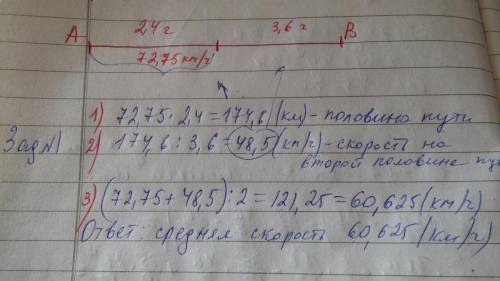 2,4 ч 3,6 ч
А В
72,75 км/ч
1) 72,75 · 2,4 = 174,6 (км) - половина пути
Зад №1
2) 174,6 : 3,6 = 48,5 (км/ч) - скорость на
второй половине пу
3) (72,75 + 48,5) : 2 = 121,25 = 60,625 (км/ч)
Ответ: средняя скорость 60,625 (км/ч)